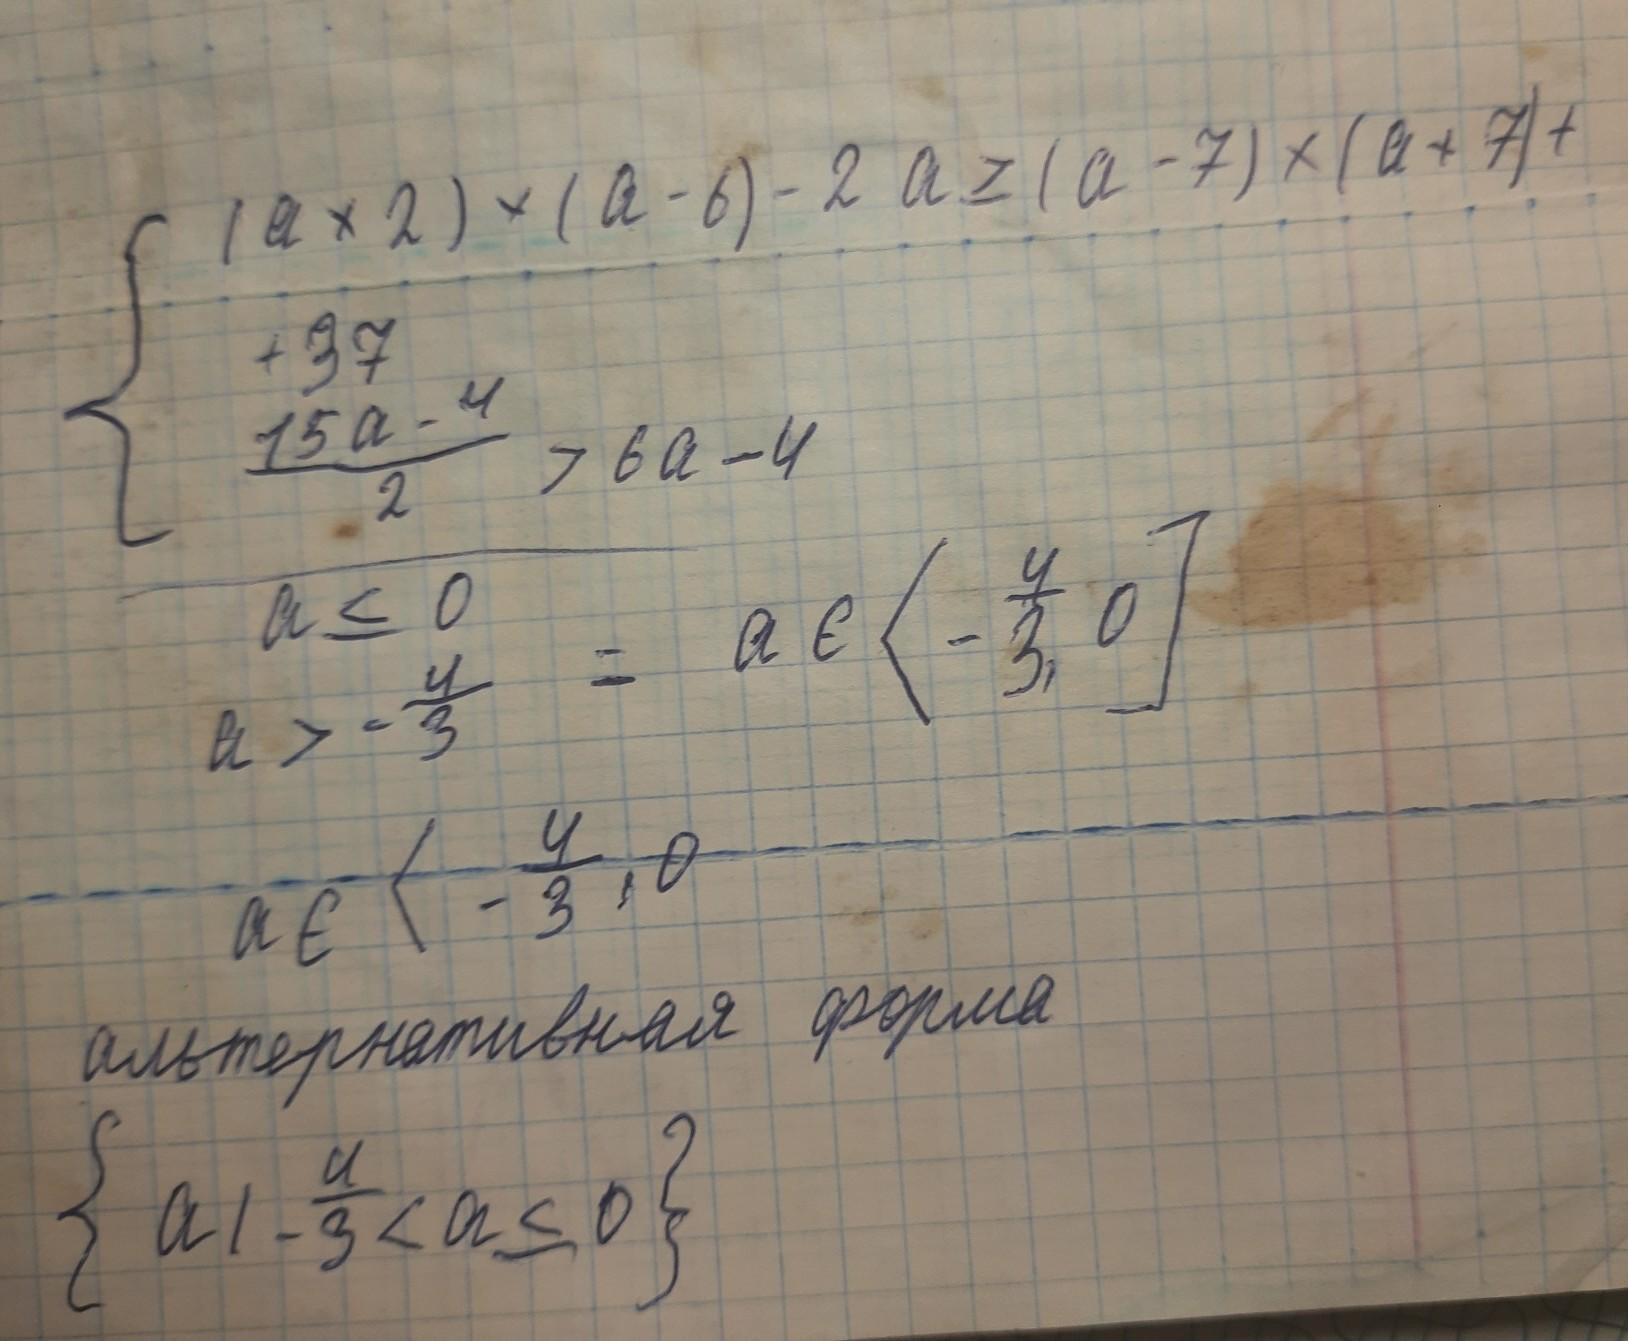 (a × 2) × (a - 6) - 2a ≥ (a - 7) × (a + 7) +
+ 37
15a - 4
2
> 6a - 4
a ≤ 0
a > - 4/3
= a ∈ ⟨ - 4/3, 0 ]
a ∈ ⟨ - 4/3, 0
альтернативная форма
{ a | - 4/3 < a ≤ 0 }